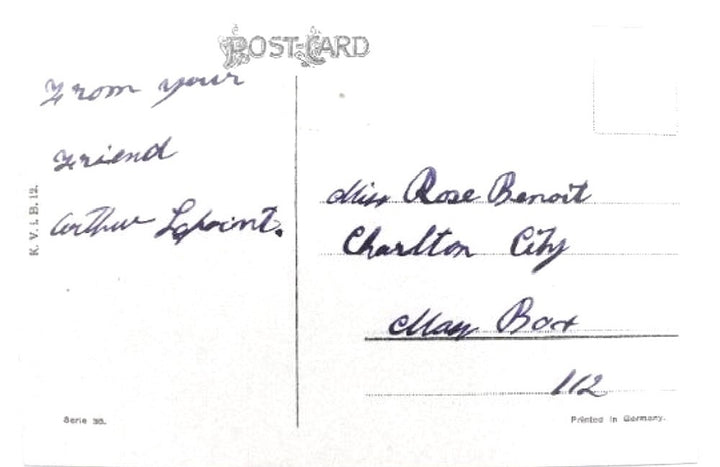 POST-CARD
From your
Friend
Arthur Lapoint.
K. V. i. B. 12.
Miss Rose Benoit
Charlton City
Mass Box
112
Serie 36.
Printed in Germany.